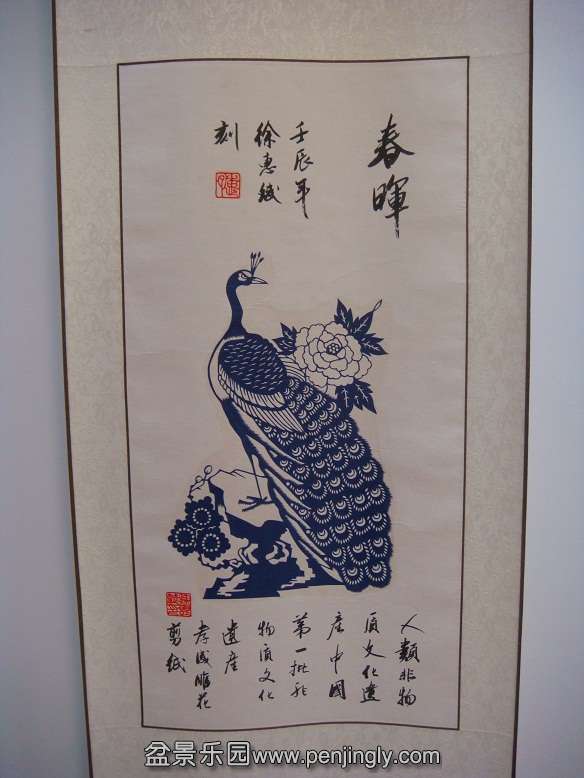 春暉
壬辰年
徐惠紙
刻
人類非物
质文化遺
産中國
第一批非
物质文化
遺産
孝感雕花
剪紙
盆景乐园www.penjingly.com